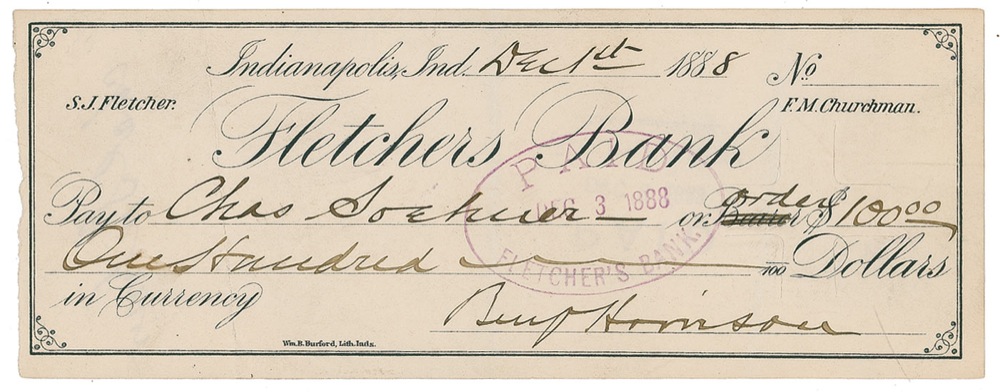 Indianapolis, Ind. Dec 1st 1888 No
S.J. Fletcher. F.M. Churchman.
Fletchers Bank
PAID
DEC 3 1888
FLETCHER'S BANK.
Pay to Chas – or order Bearer $100.00
One Hundred /100 Dollars
in Currency
Benj Harrison
Wm. B. Burford, Lith. Inds.